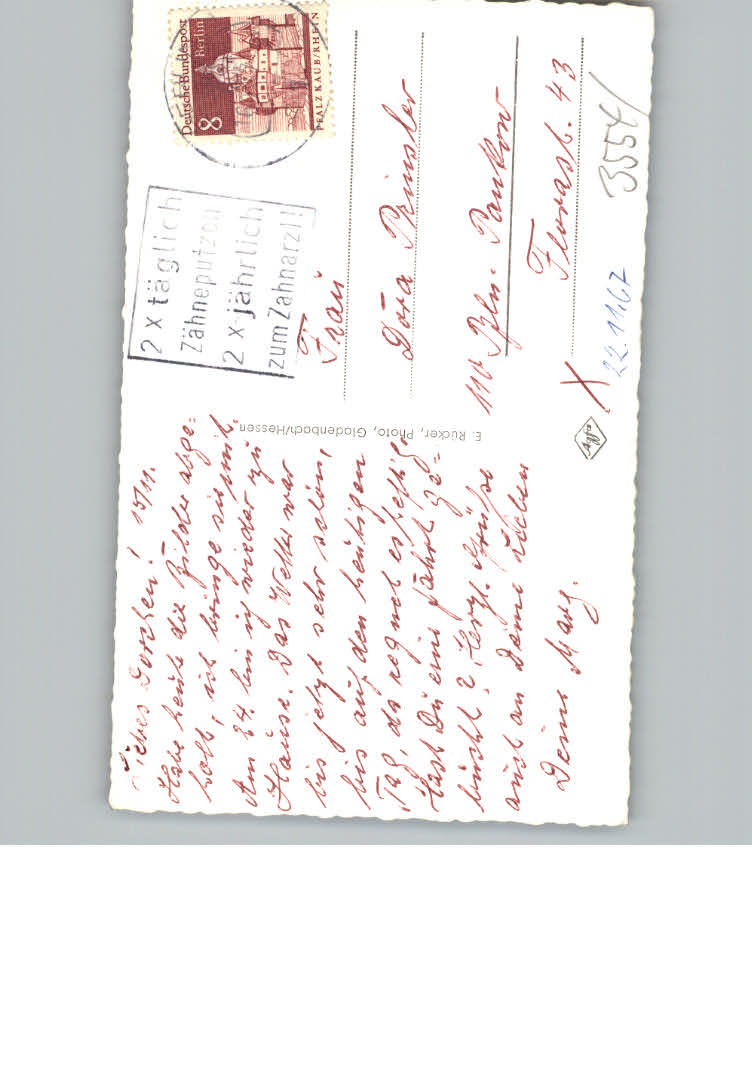 Liebes Dorchen! 15/11.
Habe heute die Bilder abge=
holt, ich bringe sie mit.
Am 24. bin ich wieder zu
Hause. Das Wetter war
bis jetzt sehr schön,
bis auf den heutigen
Tag, da regnet es heftig.
Hast Du eine Fahrt ge=
bucht? Herzl. Grüße
auch an Deine Lieben
Deine Marg.
E. Rücker, Photo, Gladenbach/Hessen
Agfa
2 x täglich
Zähneputzen
2 x jährlich
zum Zahnarzt!
Deutsche Bundespost
Berlin
8
PFALZ KAUB/RHEIN
Frau
Dora
110 Bln. Pankow
Florastr. 43
X
22.11.67
3554/